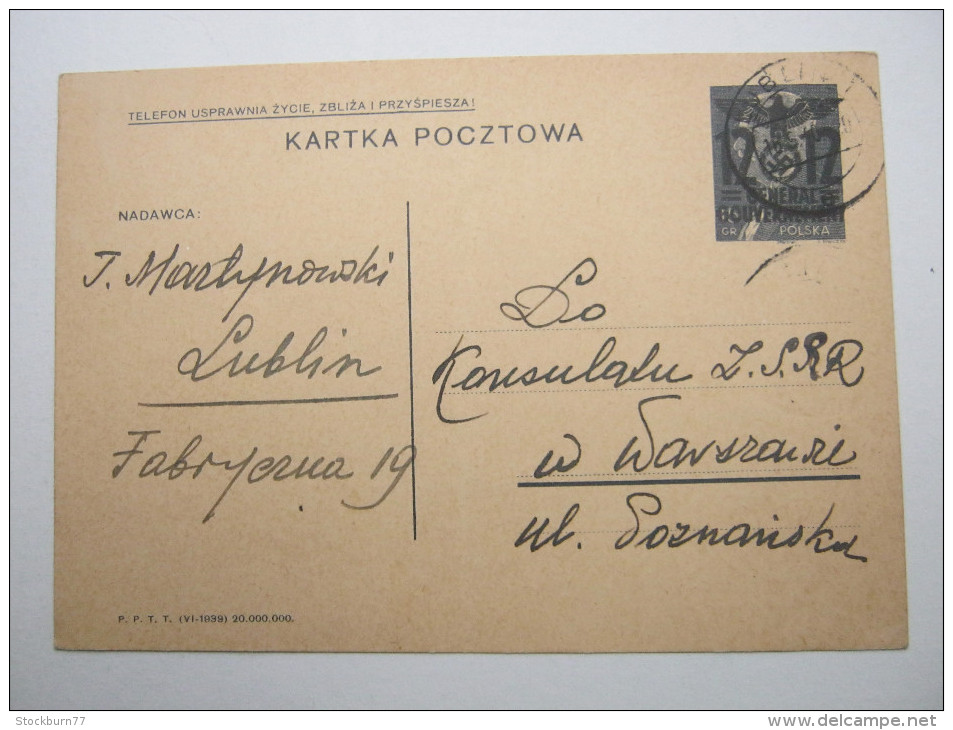 TELEFON USPRAWNIA ŻYCIE, ZBLIŻA I PRZYŚPIESZA!
KARTKA POCZTOWA
12 12
GENERAL
GOUVERNEMENT
GR POLSKA
NADAWCA:
J. Martynowski
Lublin
Fabryczna 19
Do
Konsulatu Z.S.R.R
w Warszawie
ul. Poznańska
P. P. T. T. (VI-1939) 20.000.000.
Stockburn77
www.delcampe.net